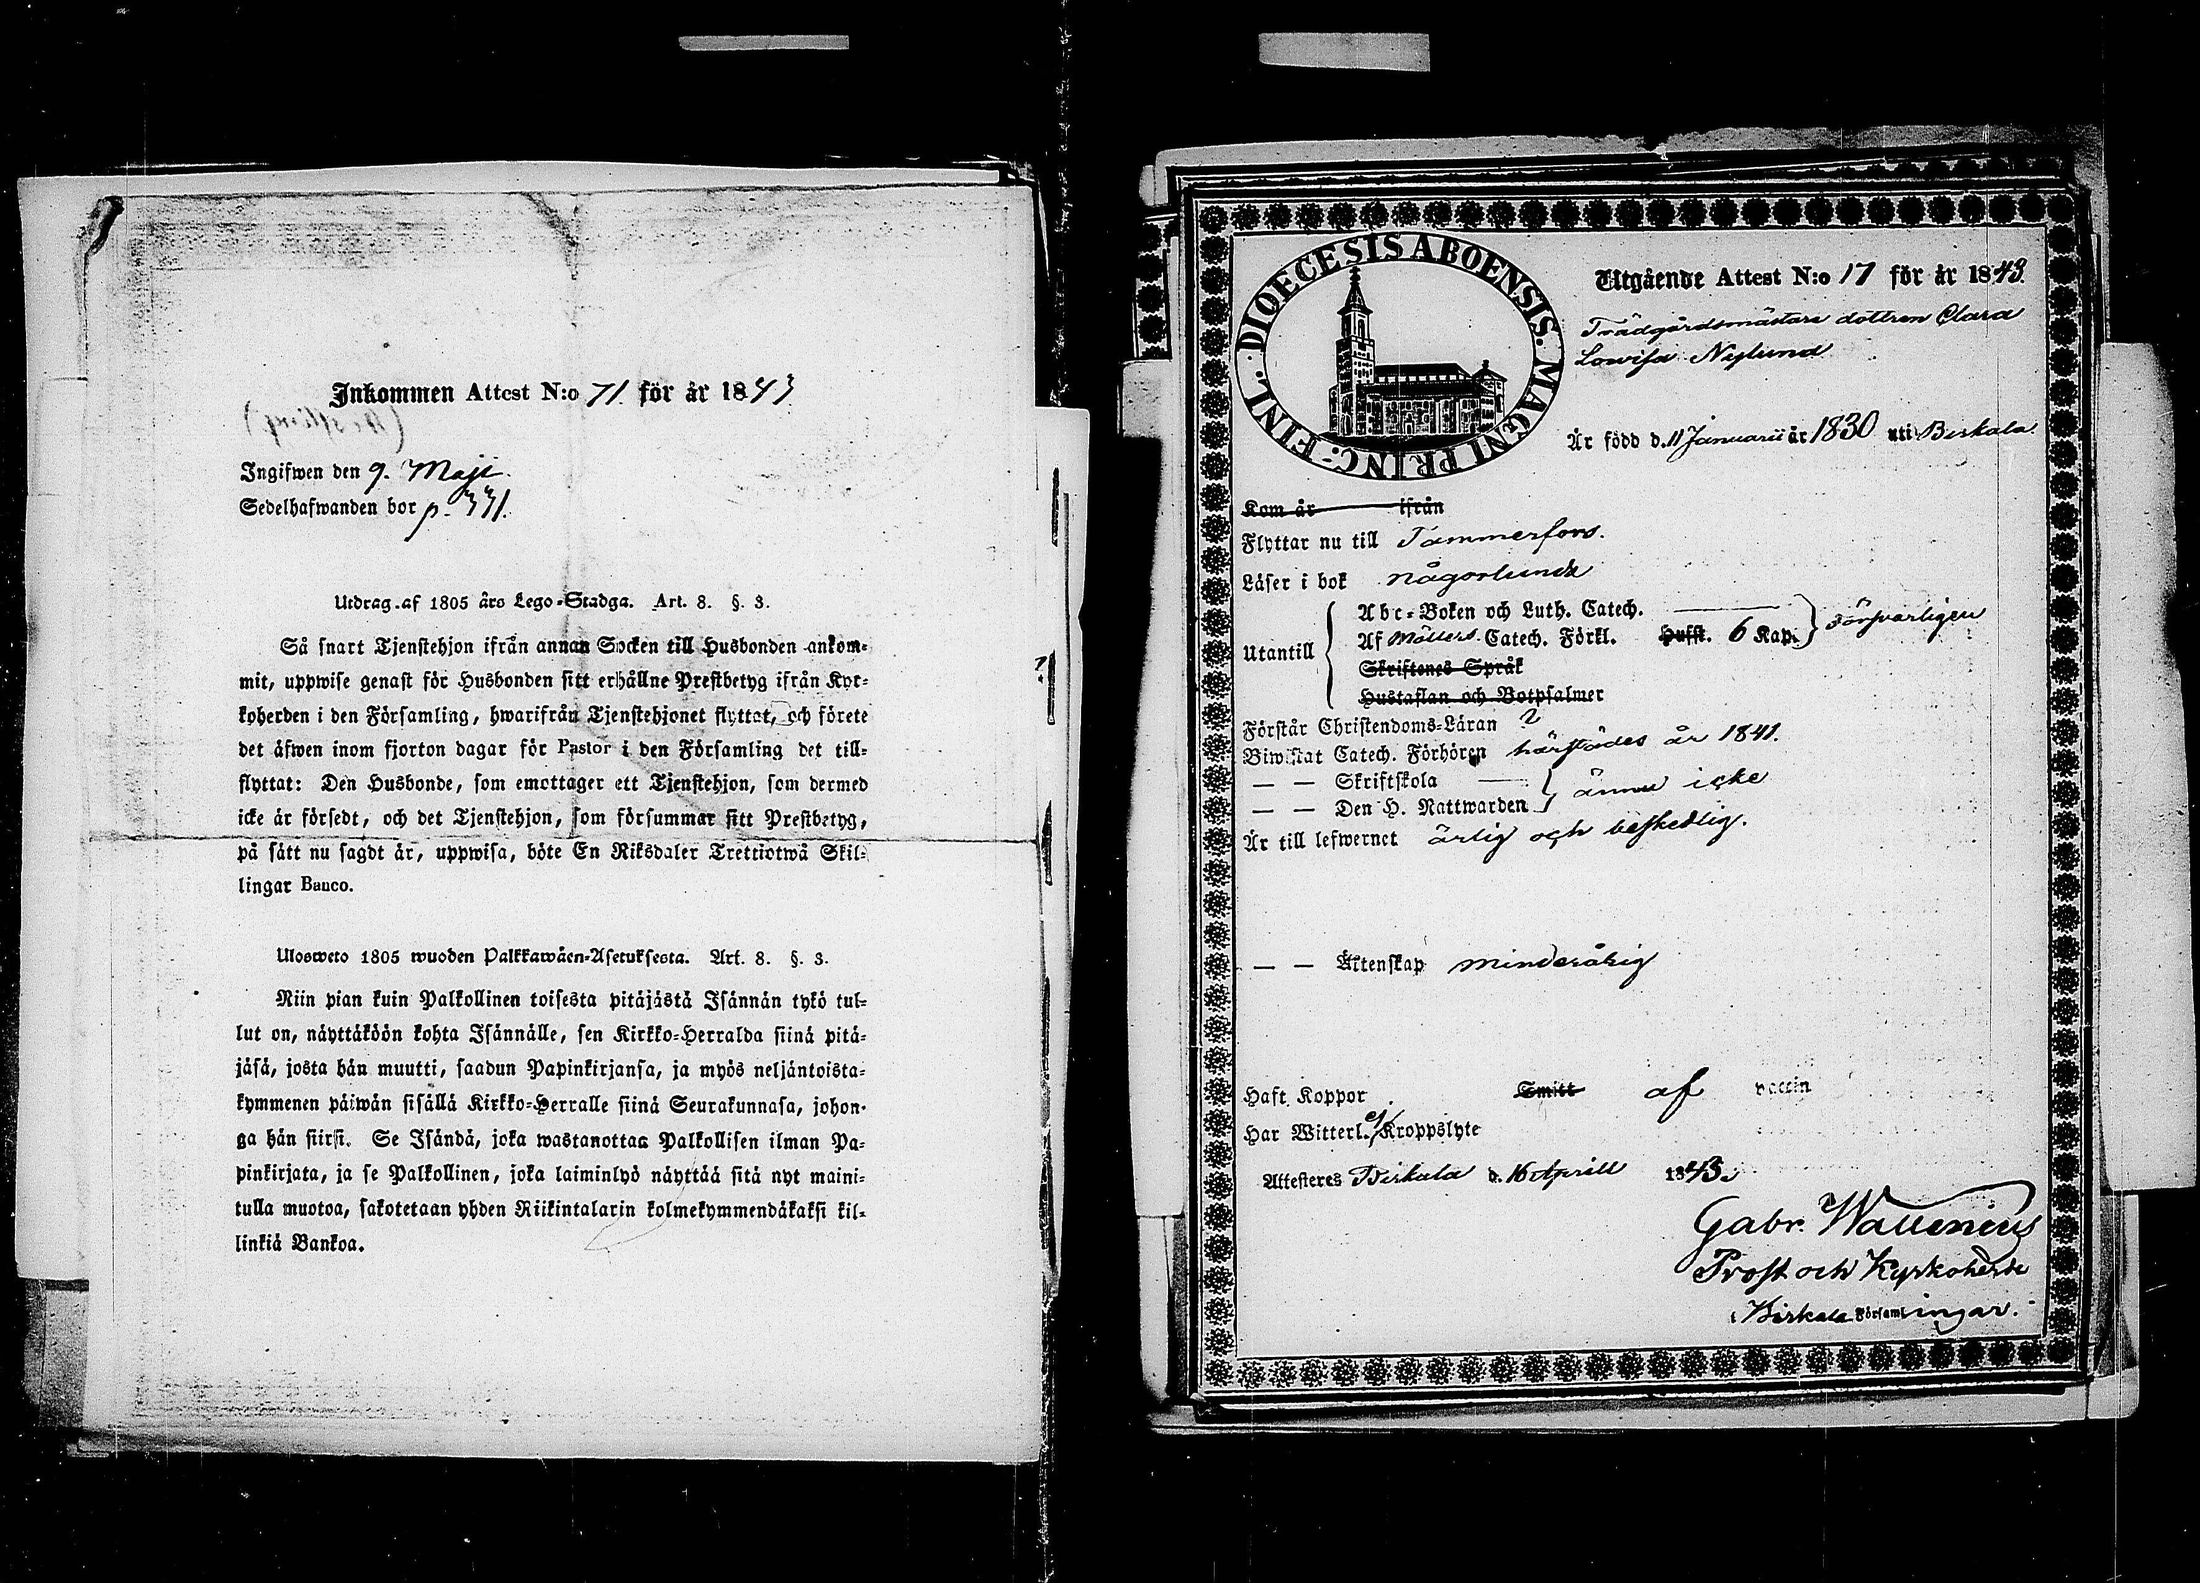 Inkommen Attest N:o 71. för år 1843
Ingifwen den 9. Maji.
Sedelhafwanden bor p. 331.
Utdrag af 1805 års Lego-Stadga. Art. 8. §. 3.
Så snart Tjenstehjon ifrån annan Socken till Husbonden ankom-
mit, uppwise genast för Husbonden sitt erhållne Prestbetyg ifrån Kyr-
koherden i den Församling, hwarifrån Tjenstehjonet flyttat, och förete
det äfwen inom fjorton dagar för Pastor i den Församling det till-
flyttat: Den Husbonde, som emottager ett Tjenstehjon, som dermed
icke är försedt, och det Tjenstehjon, som försummar sitt Prestbetyg,
på sätt nu sagdt är, uppwisa, böte En Riksdaler Trettiotwå Skil-
lingar Banco.
Ulosweto 1805 wuoden Palkkawäen-Asetuksesta. Art. 8. §. 3.
Niin pian kuin Palkollinen toisesta pitäjästä Isännän tykö tul-
lut on, näyttäköön kohta Isännälle, sen Kirkko-Herralda siinä pitä-
jäsä, josta hän muutti, saadun Papinkirjansa, ja myös neljäntoista-
kymmenen päiwän sisällä Kirkko-Herralle siinä Seurakunnasa, johon-
ga hän siirsi. Se Isändä, joka wastanottaa Palkollisen ilman Pa-
pinkirjata, ja se Palkollinen, joka laiminlyö näyttää sitä nyt maini-
tulla muotoa, sakotetaan yhden Riikintalarin kolmekymmendäkaksi kil-
linkiä Bankoa.
DIOECESIS ABOENSIS. MAGNI PRINC. FINL.
Utgående Attest N:o 17 för år 1843.
Trädgårdsmästare dottren Clara
Lovisa Nylund
Är född d. 11 Januarii år 1830 uti Birkala.
Kom år ifrån
Flyttar nu till Tammerfors.
Läser i bok någorlunda
Utantill
Abc-Boken och Luth. Catech.
Af Möllers Catech. Förkl. Hufst. 6 Kap. försvarligen
Skriftenes Språk
Hustaflan och Botpsalmer
Förstår Christendoms-Läran ?
Biwistat Catech. Förhören härstädes år 1841.
— — Skriftskola
— — Den H. Nattwarden ännu icke
Är till lefwernet ärlig och beskedlig.
— — Äktenskap minderårig
Haft Koppor Smitt af vaccin
Har Witterl. ej Kroppslyte
Attesteres Birkala d. 16 Aprill 1843.
Gabr. Wallenius
Prost och Kyrkoherde
i Birkala Församlingar.